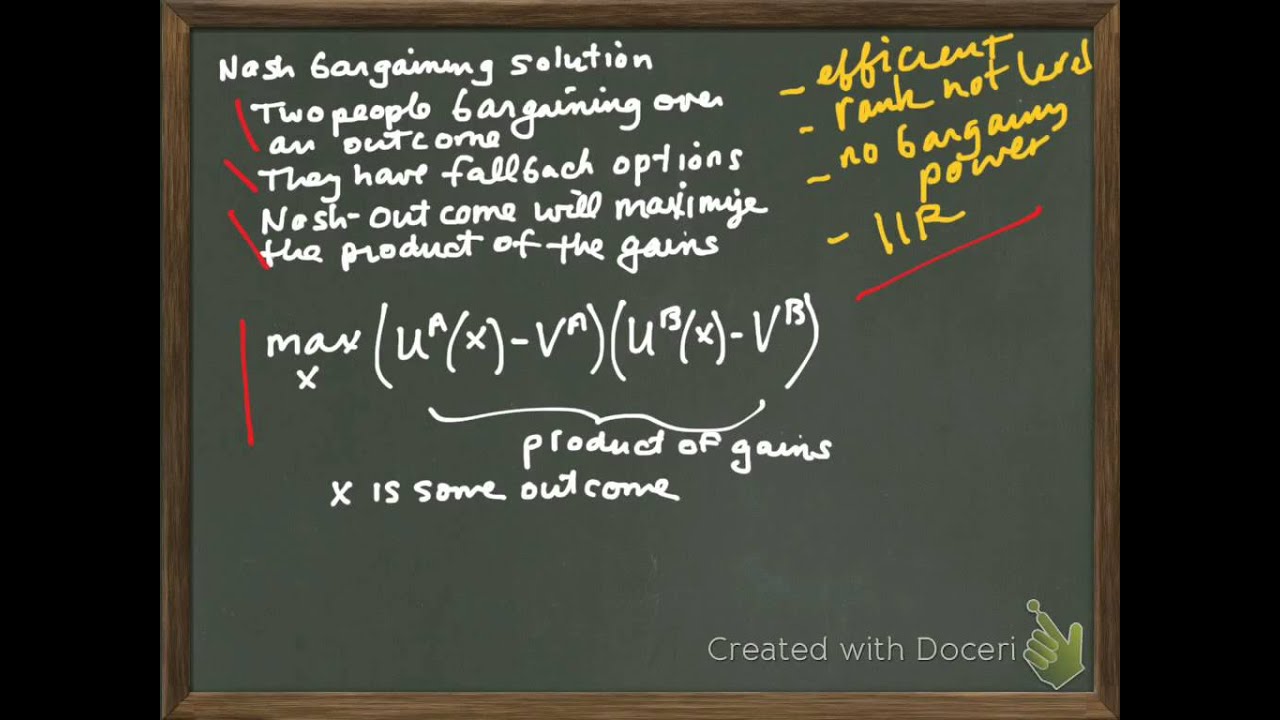 Nash bargaining solution
Two people bargaining over
an outcome
They have fallback options
Nash-outcome will maximize
the product of the gains
max (U^A(x) - V^A)(U^B(x) - V^B)
x
product of gains
x is some outcome
- efficient
- rank not level
- no bargaining
power
- IIR
Created with Doceri